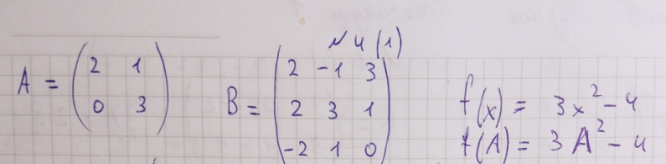 № 4 (1)
A = ( 2 1
0 3 )
B = ( 2 -1 3
2 3 1
-2 1 0 )
f(x) = 3x² - 4
f(A) = 3A² - 4